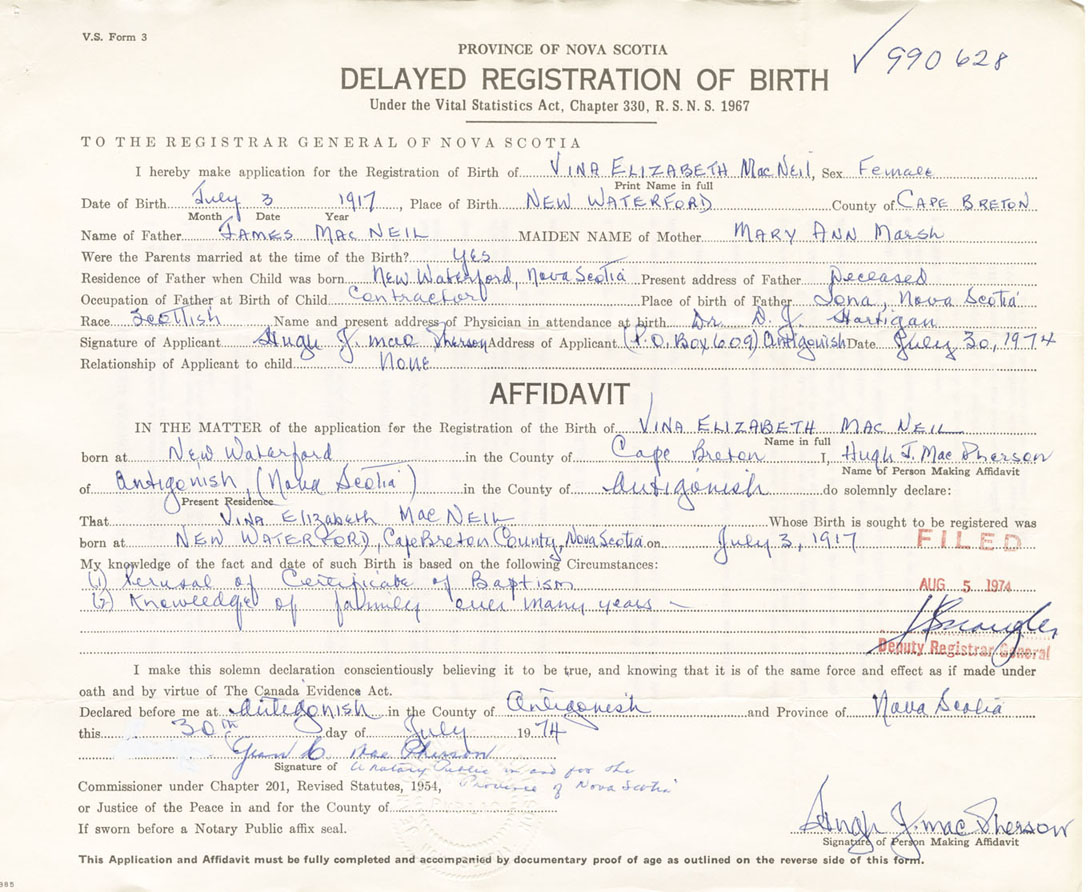 V.S. Form 3
✓ 990 628
PROVINCE OF NOVA SCOTIA
DELAYED REGISTRATION OF BIRTH
Under the Vital Statistics Act, Chapter 330, R.S.N.S. 1967
TO THE REGISTRAR GENERAL OF NOVA SCOTIA
I hereby make application for the Registration of Birth of VINA ELIZABETH MacNeil, Sex Female
Print Name in full
Date of Birth July 3 1917, Place of Birth NEW WATERFORD County of CAPE BRETON
Month Date Year
Name of Father JAMES MACNEIL MAIDEN NAME of Mother MARY ANN Marsh
Were the Parents married at the time of the Birth? Yes
Residence of Father when Child was born New Waterford, Nova Scotia Present address of Father Deceased
Occupation of Father at Birth of Child Contractor Place of birth of Father Iona, Nova Scotia
Race Scottish Name and present address of Physician in attendance at birth Dr. D. J. Hartigan
Signature of Applicant Hugh J. MacPherson Address of Applicant (P.O. Box 609) Antigonish Date July 30, 1974
Relationship of Applicant to child None
AFFIDAVIT
IN THE MATTER of the application for the Registration of the Birth of VINA ELIZABETH MACNEIL
Name in full
born at New Waterford in the County of Cape Breton I, Hugh J. MacPherson
Name of Person Making Affidavit
of Antigonish, (Nova Scotia) in the County of Antigonish do solemnly declare:
Present Residence
That Vina Elizabeth MacNeil Whose Birth is sought to be registered was
born at NEW WATERFORD, Cape Breton County, Nova Scotia on July 3, 1917
FILED
My knowledge of the fact and date of such Birth is based on the following Circumstances:
(1) Perusal of Certificate of Baptism
AUG. 5 1974
(2) Knowledge of family over many years –
Deputy Registrar General
I make this solemn declaration conscientiously believing it to be true, and knowing that it is of the same force and effect as if made under
oath and by virtue of The Canada Evidence Act.
Declared before me at Antigonish in the County of Antigonish and Province of Nova Scotia
this 30th day of July 1974
MacPherson
Signature of A Notary Public in and for the
Commissioner under Chapter 201, Revised Statutes, 1954, Province of Nova Scotia
or Justice of the Peace in and for the County of
Hugh J. MacPherson
If sworn before a Notary Public affix seal.
Signature of Person Making Affidavit
This Application and Affidavit must be fully completed and accompanied by documentary proof of age as outlined on the reverse side of this form.
885